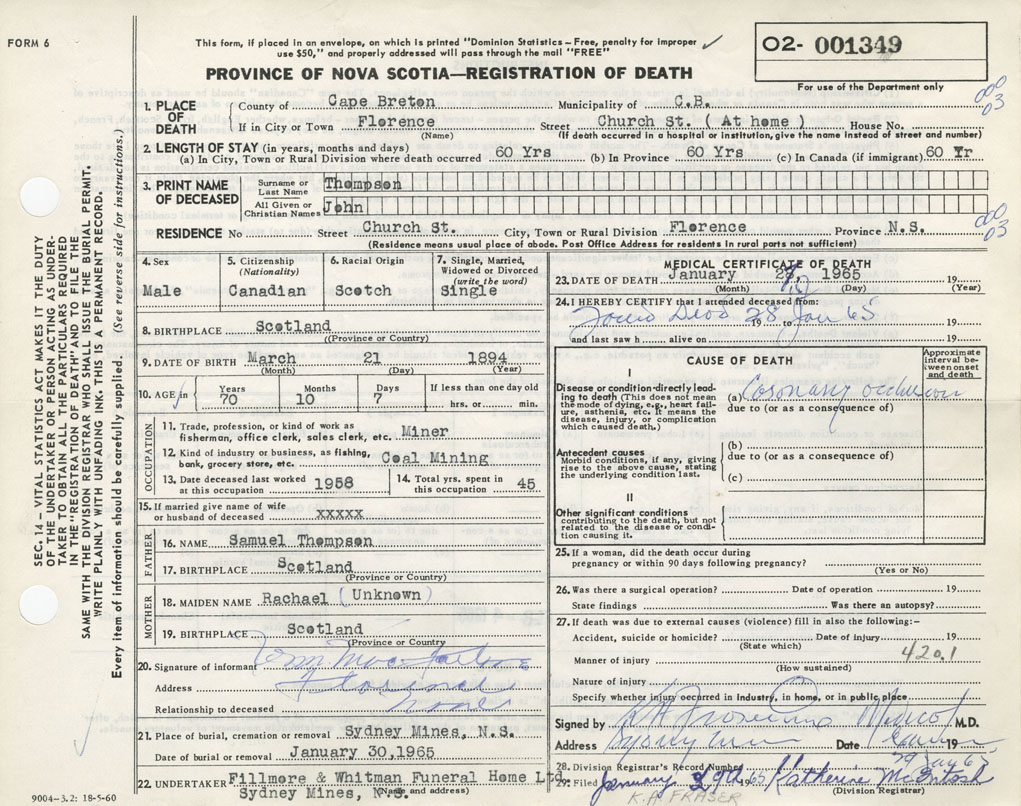 FORM 6
This form, if placed in an envelope, on which is printed "Dominion Statistics—Free, penalty for improper
use $50," and properly addressed will pass through the mail "FREE"
02- 001349
For use of the Department only
PROVINCE OF NOVA SCOTIA—REGISTRATION OF DEATH
000
03
1. PLACE OF DEATH
County of Cape Breton Municipality of C.B.
If in City or Town Florence Street Church St. ( At home ) House No.
(Name) (If death occurred in a hospital or institution, give the name instead of street and number)
2. LENGTH OF STAY (in years, months and days)
(a) In City, Town or Rural Division where death occurred 60 Yrs (b) In Province 60 Yrs (c) In Canada (if immigrant) 60 Yr
3. PRINT NAME OF DECEASED
Surname or Last Name Thompson
All Given or Christian Names John
RESIDENCE No Street Church St. City, Town or Rural Division Florence Province N.S.
000
03
(Residence means usual place of abode. Post Office Address for residents in rural parts not sufficient)
4. Sex
Male
5. Citizenship
(Nationality)
Canadian
6. Racial Origin
Scotch
7. Single, Married,
Widowed or Divorced
(write the word)
Single
8. BIRTHPLACE Scotland
((Province or Country)
9. DATE OF BIRTH March 21 1894
(Month) (Day) (Year)
10. AGE in
Years 70
Months 10
Days 7
If less than one day old
hrs. or min.
OCCUPATION
11. Trade, profession, or kind of work as
fisherman, office clerk, sales clerk, etc. Miner
12. Kind of industry or business, as fishing,
bank, grocery store, etc. Coal Mining
13. Date deceased last worked
at this occupation 1958
14. Total yrs. spent in
this occupation 45
15. If married give name of wife
or husband of deceased xxxxx
FATHER
16. NAME Samuel Thompson
17. BIRTHPLACE Scotland
(Province or Country)
MOTHER
18. MAIDEN NAME Rachael ( Unknown )
19. BIRTHPLACE Scotland
(Province or Country
20. Signature of informant
Address Florence
Relationship to deceased none
21. Place of burial, cremation or removal Sydney Mines, N.S.
Date of burial or removal January 30,1965
22. UNDERTAKER Fillmore & Whitman Funeral Home Ltd
Sydney Mines, N.S.
(Name and address)
MEDICAL CERTIFICATE OF DEATH
23. DATE OF DEATH January 28, 1965 19
(Month) (Day) (Year)
24. I HEREBY CERTIFY that I attended deceased from:
Found Dead 28 Jan 65
19 to 19
and last saw h alive on 19
CAUSE OF DEATH
Approximate
interval be-
tween onset
and death
I
Disease or condition directly lead-
ing to death (This does not mean
the mode of dying, e.g., heart fail-
ure, asthenia, etc. It means the
disease, injury, or complication
which caused death.)
(a) Coronary occlusion
due to (or as a consequence of)
Antecedent causes
Morbid conditions, if any, giving
rise to the above cause, stating
the underlying condition last.
(b)
due to (or as a consequence of)
(c)
II
Other significant conditions
contributing to the death, but not
related to the disease or condi-
tion causing it.
25. If a woman, did the death occur during
pregnancy or within 90 days following pregnancy?
(Yes or No)
26. Was there a surgical operation? Date of operation 19
State findings Was there an autopsy?
27. If death was due to external causes (violence) fill in also the following:—
Accident, suicide or homicide? Date of injury 19
(State which)
420.1
Manner of injury
(How sustained)
Nature of injury
Specify whether injury occurred in industry, in home, or in public place
Signed by M.D.
Address Date 19
28. Division Registrar's Record Number
29. Filed January 29th 65 Katherine McIntosh
(Division Registrar)
K.A. FRASER
9004—3.2: 18-5-60
SEC. 14—VITAL STATISTICS ACT MAKES IT THE DUTY
OF THE UNDERTAKER OR PERSON ACTING AS UNDER-
TAKER TO OBTAIN ALL THE PARTICULARS REQUIRED
IN THE "REGISTRATION OF DEATH" AND TO FILE THE
SAME WITH THE DIVISION REGISTRAR WHO SHALL ISSUE THE BURIAL PERMIT.
WRITE PLAINLY WITH UNFADING INK. THIS IS A PERMANENT RECORD.
Every item of information should be carefully supplied. (See reverse side for instructions.)